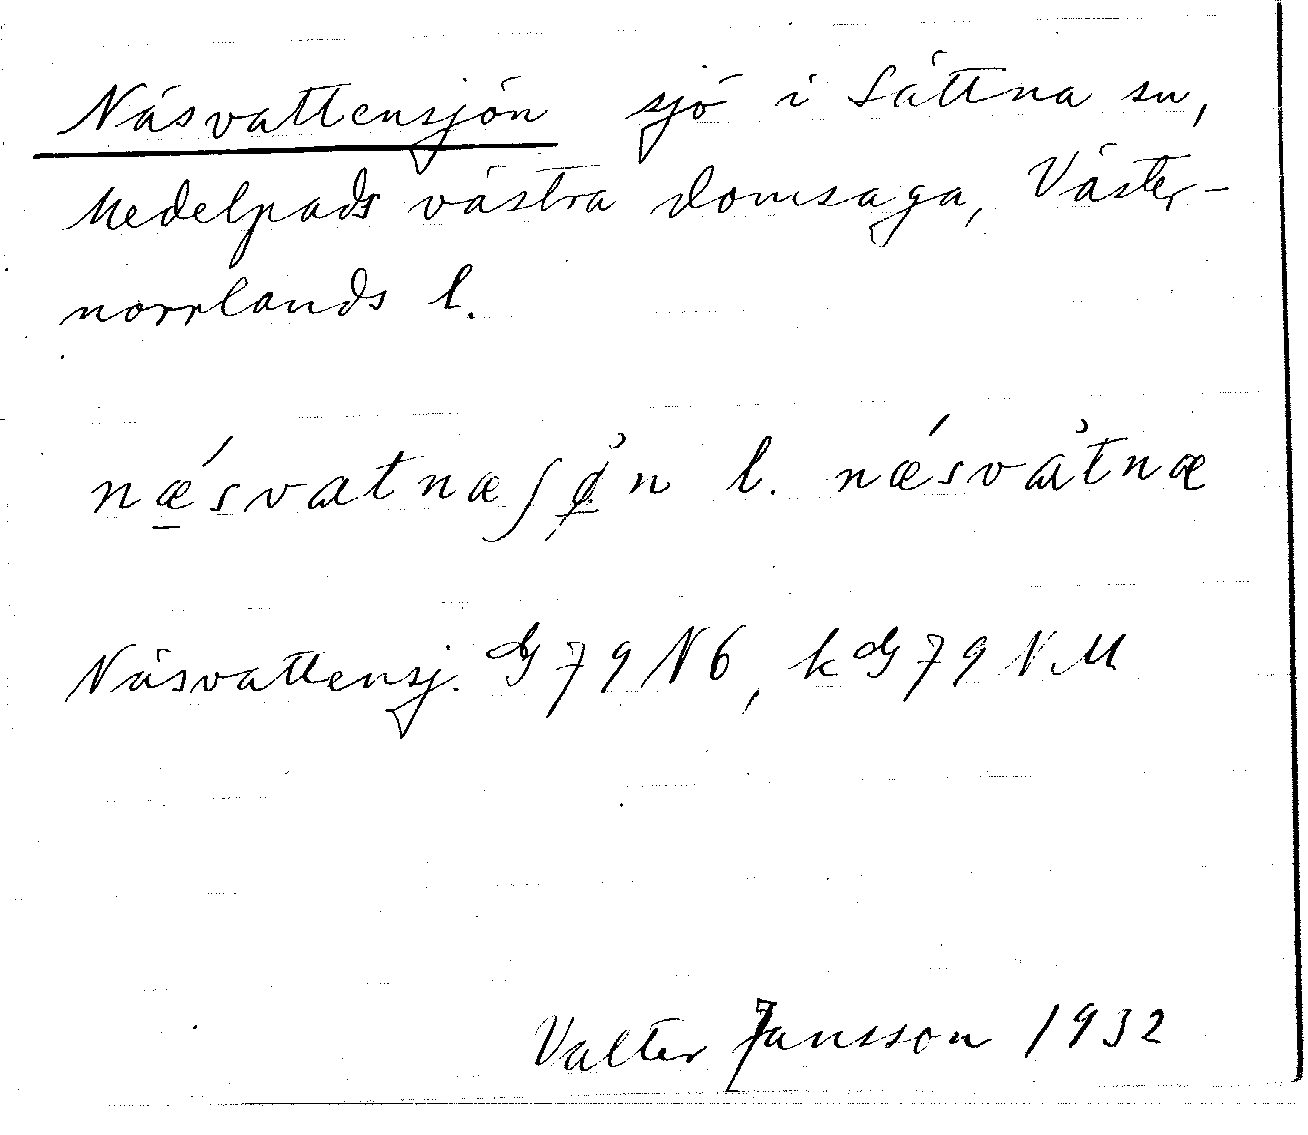 Näsvattensjön sjö i Sättna sn,
Medelpads västra domsaga, Väster-
norrlands l.
nǽ̱svatnæʃø̠̉n l. nǽsvàtnæ
Näsvattensj. G 79 N6, kG 79 NM
Valter Jansson 1932